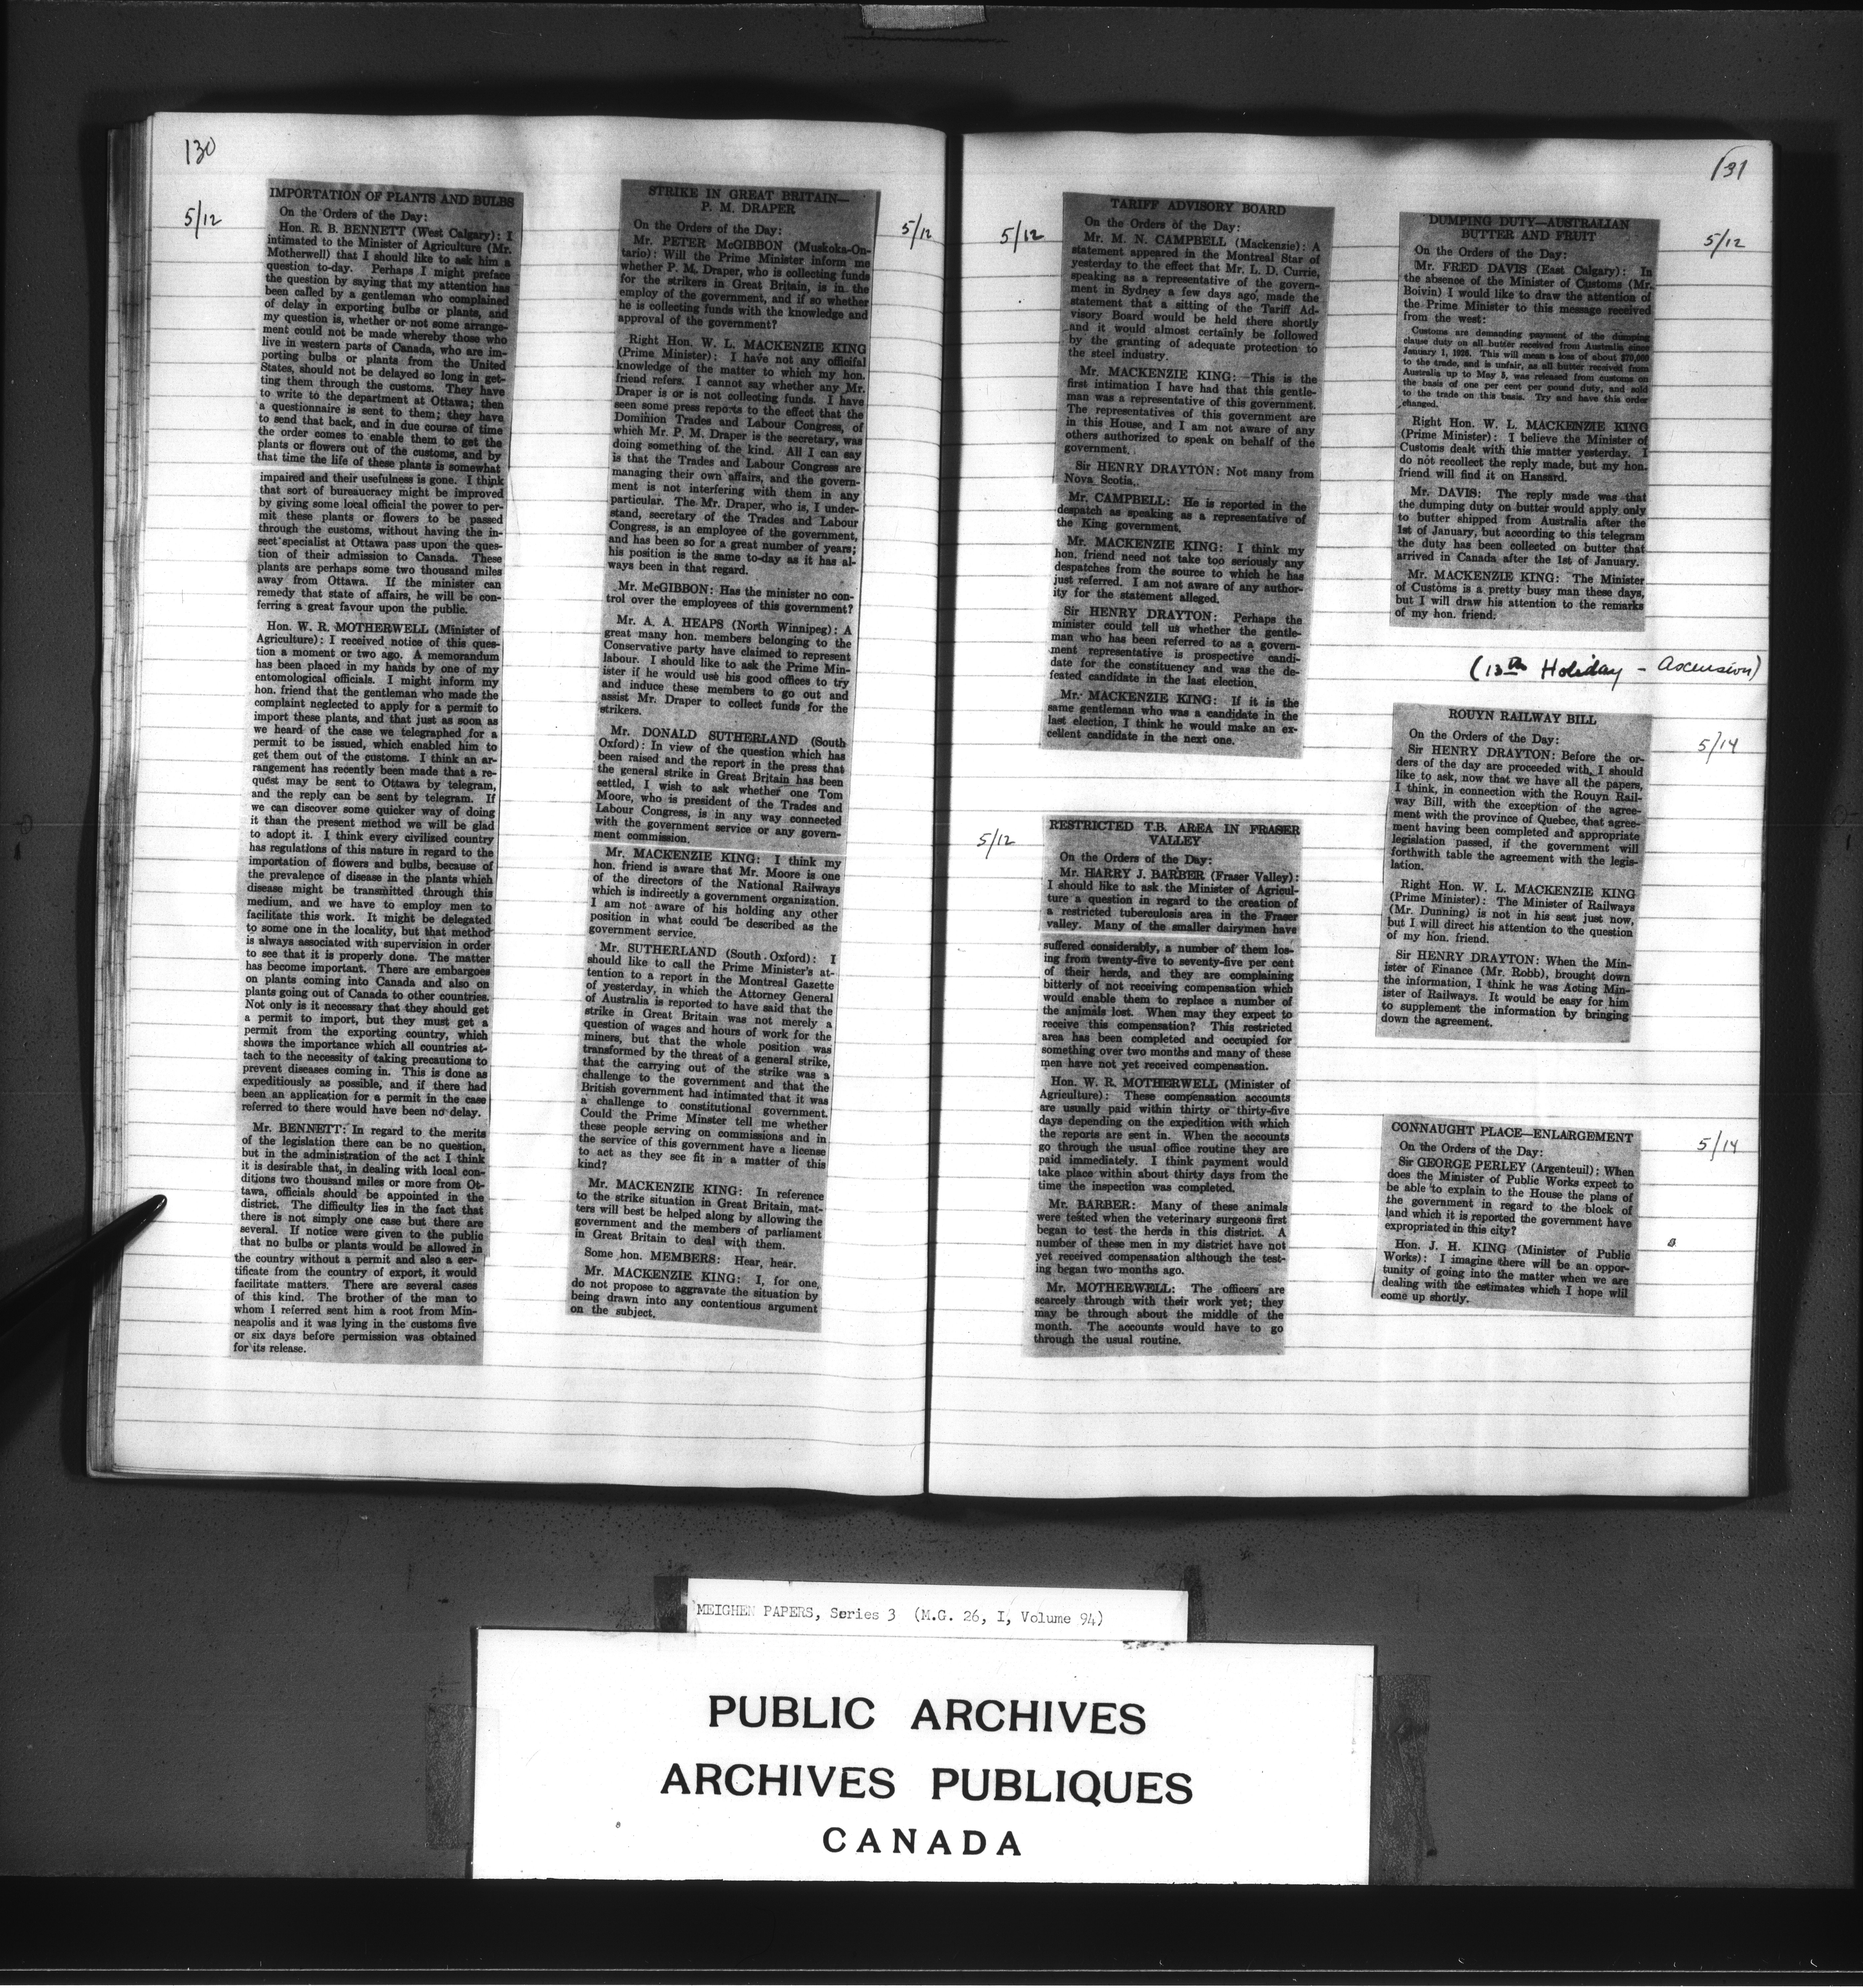 130
5/12
IMPORTATION OF PLANTS AND BULBS
On the Orders of the Day:
Hon. R. B. BENNETT (West Calgary): I
intimated to the Minister of Agriculture (Mr.
Motherwell) that I should like to ask him a
question to-day. Perhaps I might preface
the question by saying that my attention has
been called by a gentleman who complained
of delay in exporting bulbs or plants, and
my question is, whether or not some arrange-
ment could not be made whereby those who
live in western parts of Canada, who are im-
porting bulbs or plants from the United
States, should not be delayed so long in get-
ting them through the customs. They have
to write to the department at Ottawa; then
a questionnaire is sent to them; they have
to send that back, and in due course of time
the order comes to enable them to get the
plants or flowers out of the customs, and by
that time the life of these plants is somewhat
impaired and their usefulness is gone. I think
that sort of bureaucracy might be improved
by giving some local official the power to per-
mit these plants or flowers to be passed
through the customs, without having the in-
sect specialist at Ottawa pass upon the ques-
tion of their admission to Canada. These
plants are perhaps some two thousand miles
away from Ottawa. If the minister can
remedy that state of affairs, he will be con-
ferring a great favour upon the public.
Hon. W. R. MOTHERWELL (Minister of
Agriculture): I received notice of this ques-
tion a moment or two ago. A memorandum
has been placed in my hands by one of my
entomological officials. I might inform my
hon. friend that the gentleman who made the
complaint neglected to apply for a permit to
import these plants, and that just as soon as
we heard of the case we telegraphed for a
permit to be issued, which enabled him to
get them out of the customs. I think an ar-
rangement has recently been made that a re-
quest may be sent to Ottawa by telegram,
and the reply can be sent by telegram. If
we can discover some quicker way of doing
it than the present method we will be glad
to adopt it. I think every civilized country
has regulations of this nature in regard to the
importation of flowers and bulbs, because of
the prevalence of disease in the plants which
disease might be transmitted through this
medium, and we have to employ men to
facilitate this work. It might be delegated
to some one in the locality, but that method
is always associated with supervision in order
to see that it is properly done. The matter
has become important. There are embargoes
on plants coming into Canada and also on
plants going out of Canada to other countries.
Not only is it necessary that they should get
a permit to import, but they must get a
permit from the exporting country, which
shows the importance which all countries at-
tach to the necessity of taking precautions to
prevent diseases coming in. This is done as
expeditiously as possible, and if there had
been an application for a permit in the case
referred to there would have been no delay.
Mr. BENNETT: In regard to the merits
of the legislation there can be no question,
but in the administration of the act I think
it is desirable that, in dealing with local con-
ditions two thousand miles or more from Ot-
tawa, officials should be appointed in the
district. The difficulty lies in the fact that
there is not simply one case but there are
several. If notice were given to the public
that no bulbs or plants would be allowed in
the country without a permit and also a cer-
tificate from the country of export, it would
facilitate matters. There are several cases
of this kind. The brother of the man to
whom I referred sent him a root from Min-
neapolis and it was lying in the customs five
or six days before permission was obtained
for its release.
5/12
STRIKE IN GREAT BRITAIN—
P. M. DRAPER
On the Orders of the Day:
Mr. PETER McGIBBON (Muskoka-On-
tario): Will the Prime Minister inform me
whether P. M. Draper, who is collecting funds
for the strikers in Great Britain, is in the
employ of the government, and if so whether
he is collecting funds with the knowledge and
approval of the government?
Right Hon. W. L. MACKENZIE KING
(Prime Minister): I have not any official
knowledge of the matter to which my hon.
friend refers. I cannot say whether any Mr.
Draper is or is not collecting funds. I have
seen some press reports to the effect that the
Dominion Trades and Labour Congress, of
which Mr. P. M. Draper is the secretary, was
doing something of the kind. All I can say
is that the Trades and Labour Congress are
managing their own affairs, and the govern-
ment is not interfering with them in any
particular. The Mr. Draper, who is, I under-
stand, secretary of the Trades and Labour
Congress, is an employee of the government,
and has been so for a great number of years;
his position is the same to-day as it has al-
ways been in that regard.
Mr. McGIBBON: Has the minister no con-
trol over the employees of this government?
Mr. A. A. HEAPS (North Winnipeg): A
great many hon. members belonging to the
Conservative party have claimed to represent
labour. I should like to ask the Prime Min-
ister if he would use his good offices to try
and induce these members to go out and
assist Mr. Draper to collect funds for the
strikers.
Mr. DONALD SUTHERLAND (South
Oxford): In view of the question which has
been raised and the report in the press that
the general strike in Great Britain has been
settled, I wish to ask whether one Tom
Moore, who is president of the Trades and
Labour Congress, is in any way connected
with the government service or any govern-
ment commission.
Mr. MACKENZIE KING: I think my
hon. friend is aware that Mr. Moore is one
of the directors of the National Railways
which is indirectly a government organization.
I am not aware of his holding any other
position in what could be described as the
government service.
Mr. SUTHERLAND (South Oxford): I
should like to call the Prime Minister's at-
tention to a report in the Montreal Gazette
of yesterday, in which the Attorney General
of Australia is reported to have said that the
strike in Great Britain was not merely a
question of wages and hours of work for the
miners, but that the whole position was
transformed by the threat of a general strike,
that the carrying out of the strike was a
challenge to the government and that the
British government had intimated that it was
a challenge to constitutional government.
Could the Prime Minster tell me whether
these people serving on commissions and in
the service of this government have a license
to act as they see fit in a matter of this
kind?
Mr. MACKENZIE KING: In reference
to the strike situation in Great Britain, mat-
ters will best be helped along by allowing the
government and the members of parliament
in Great Britain to deal with them.
Some hon. MEMBERS: Hear, hear.
Mr. MACKENZIE KING: I, for one,
do not propose to aggravate the situation by
being drawn into any contentious argument
on the subject.
131
5/12
TARIFF ADVISORY BOARD
On the Orders of the Day:
Mr. M. N. CAMPBELL (Mackenzie): A
statement appeared in the Montreal Star of
yesterday to the effect that Mr. L. D. Currie,
speaking as a representative of the govern-
ment in Sydney a few days ago, made the
statement that a sitting of the Tariff Ad-
visory Board would be held there shortly
and it would almost certainly be followed
by the granting of adequate protection to
the steel industry.
Mr. MACKENZIE KING: This is the
first intimation I have had that this gentle-
man was a representative of this government.
The representatives of this government are
in this House, and I am not aware of any
others authorized to speak on behalf of the
government.
Sir HENRY DRAYTON: Not many from
Nova Scotia.
Mr. CAMPBELL: He is reported in the
despatch as speaking as a representative of
the King government.
Mr. MACKENZIE KING: I think my
hon. friend need not take too seriously any
despatches from the source to which he has
just referred. I am not aware of any author-
ity for the statement alleged.
Sir HENRY DRAYTON: Perhaps the
minister could tell us whether the gentle-
man who has been referred to as a govern-
ment representative is prospective candi-
date for the constituency and was the de-
feated candidate in the last election.
Mr. MACKENZIE KING: If it is the
same gentleman who was a candidate in the
last election, I think he would make an ex-
cellent candidate in the next one.
5/12
RESTRICTED T.B. AREA IN FRASER
VALLEY
On the Orders of the Day:
Mr. HARRY J. BARBER (Fraser Valley):
I should like to ask the Minister of Agricul-
ture a question in regard to the creation of
a restricted tuberculosis area in the Fraser
valley. Many of the smaller dairymen have
suffered considerably, a number of them los-
ing from twenty-five to seventy-five per cent
of their herds, and they are complaining
bitterly of not receiving compensation which
would enable them to replace a number of
the animals lost. When may they expect to
receive this compensation? This restricted
area has been completed and occupied for
something over two months and many of these
men have not yet received compensation.
Hon. W. R. MOTHERWELL (Minister of
Agriculture): These compensation accounts
are usually paid within thirty or thirty-five
days depending on the expedition with which
the reports are sent in. When the accounts
go through the usual office routine they are
paid immediately. I think payment would
take place within about thirty days from the
time the inspection was completed.
Mr. BARBER: Many of these animals
were tested when the veterinary surgeons first
began to test the herds in this district. A
number of these men in my district have not
yet received compensation although the test-
ing began two months ago.
Mr. MOTHERWELL: The officers are
scarcely through with their work yet; they
may be through about the middle of the
month. The accounts would have to go
through the usual routine.
5/12
DUMPING DUTY—AUSTRALIAN
BUTTER AND FRUIT
On the Orders of the Day:
Mr. FRED DAVIS (East Calgary): In
the absence of the Minister of Customs (Mr.
Boivin) I would like to draw the attention of
the Prime Minister to this message received
from the west:
Customs are demanding payment of the dumping
clause duty on all butter received from Australia since
January 1, 1926. This will mean a loss of about $70,000
to the trade, and is unfair, as all butter received from
Australia up to May 5, was released from customs on
the basis of one per cent per pound duty, and sold
to the trade on this basis. Try and have this order
changed.
Right Hon. W. L. MACKENZIE KING
(Prime Minister): I believe the Minister of
Customs dealt with this matter yesterday. I
do not recollect the reply made, but my hon.
friend will find it on Hansard.
Mr. DAVIS: The reply made was that
the dumping duty on butter would apply only
to butter shipped from Australia after the
1st of January, but according to this telegram
the duty has been collected on butter that
arrived in Canada after the 1st of January.
Mr. MACKENZIE KING: The Minister
of Customs is a pretty busy man these days,
but I will draw his attention to the remarks
of my hon. friend.
(13th Holiday - Ascension)
5/14
ROUYN RAILWAY BILL
On the Orders of the Day:
Sir HENRY DRAYTON: Before the or-
ders of the day are proceeded with, I should
like to ask, now that we have all the papers,
I think, in connection with the Rouyn Rail-
way Bill, with the exception of the agree-
ment with the province of Quebec, that agree-
ment having been completed and appropriate
legislation passed, if the government will
forthwith table the agreement with the legis-
lation.
Right Hon. W. L. MACKENZIE KING
(Prime Minister): The Minister of Railways
(Mr. Dunning) is not in his seat just now,
but I will direct his attention to the question
of my hon. friend.
Sir HENRY DRAYTON: When the Min-
ister of Finance (Mr. Robb), brought down
the information, I think he was Acting Min-
ister of Railways. It would be easy for him
to supplement the information by bringing
down the agreement.
5/14
CONNAUGHT PLACE—ENLARGEMENT
On the Orders of the Day:
Sir GEORGE PERLEY (Argenteuil): When
does the Minister of Public Works expect to
be able to explain to the House the plans of
the government in regard to the block of
land which it is reported the government have
expropriated in this city?
Hon. J. H. KING (Minister of Public
Works): I imagine there will be an oppor-
tunity of going into the matter when we are
dealing with the estimates which I hope wlil
come up shortly.
MEIGHEN PAPERS, Series 3 (M.G. 26, I, Volume 94)
PUBLIC ARCHIVES
ARCHIVES PUBLIQUES
CANADA